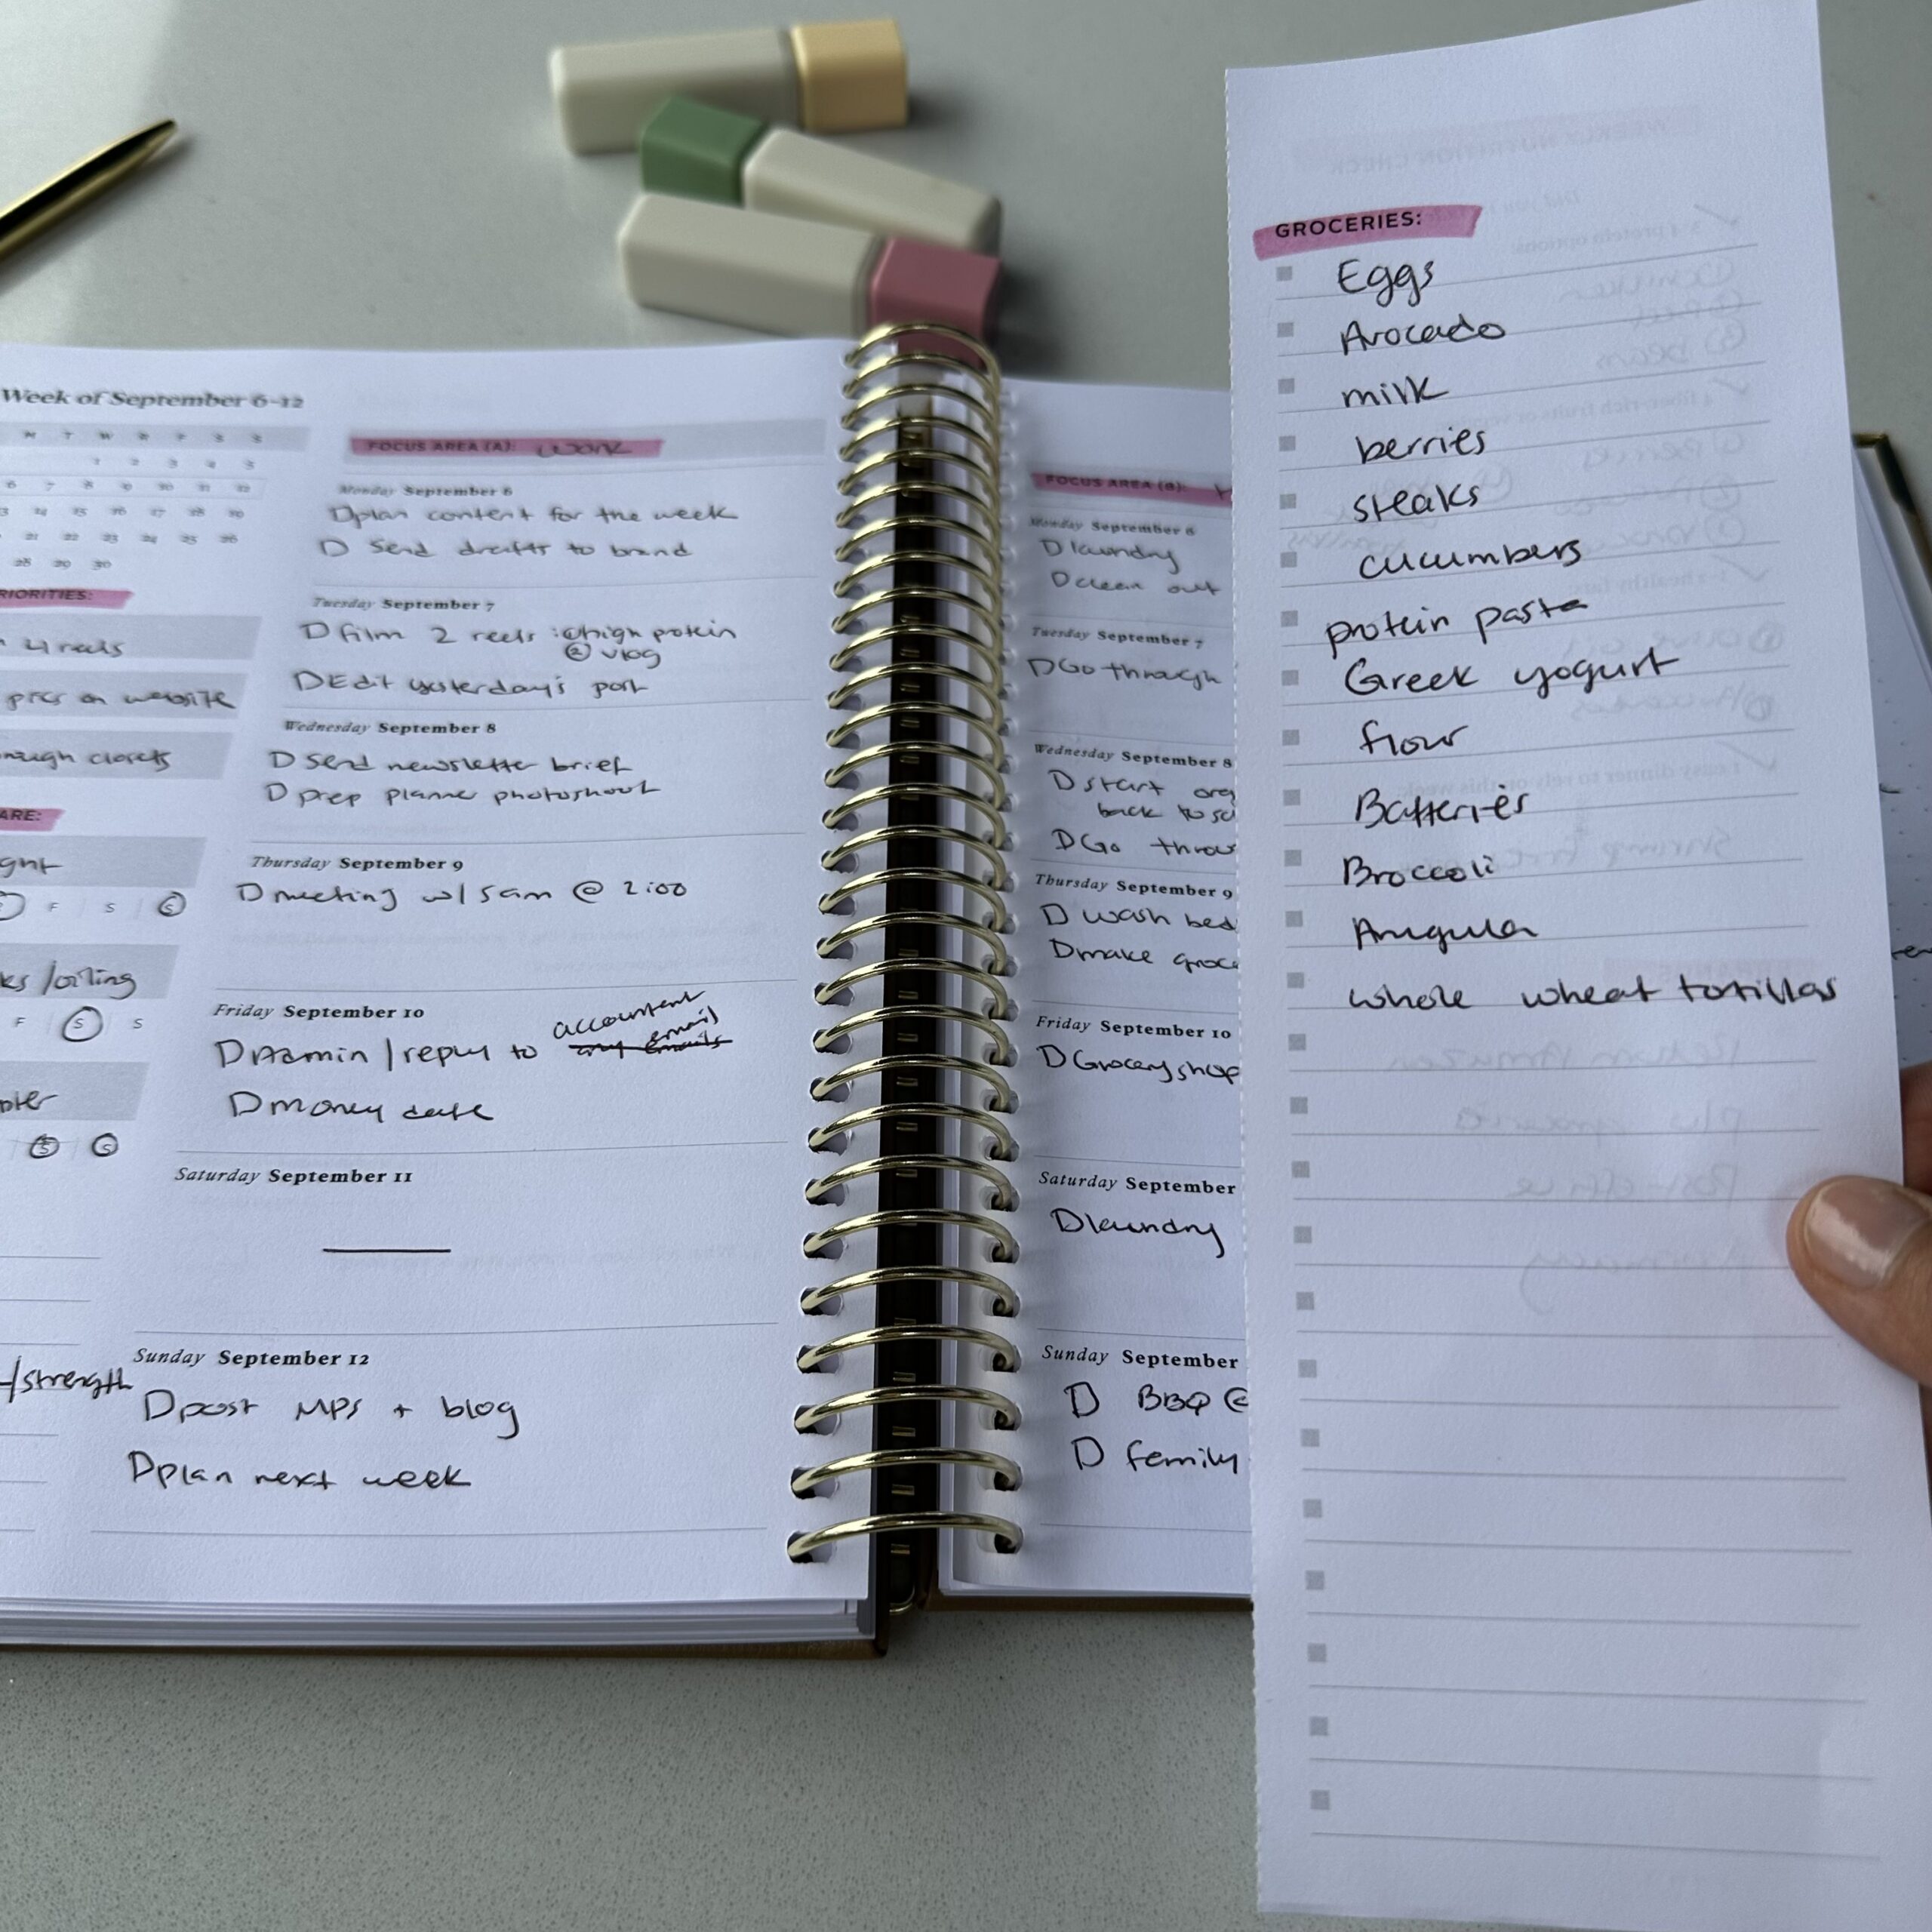 Week of September 6-12
M T W R F S S
1 2 3 4 5
6 7 8 9 10 11 12
14 15 16 17 18 19
21 22 23 24 25 26
28 29 30
RIORITIES:
4 reels
pics on website
closets
ARE:
F S S
/oiling
F S S
S S
/strength
FOCUS AREA (A): work
Monday September 6
plan content for the week
send drafts to brand
Tuesday September 7
film 2 reels: ① high protein
② vlog
Edit yesterday's post
Wednesday September 8
send newsletter brief
prep planner photoshoot
Thursday September 9
meeting w/ Sam @ 2:00
Friday September 10
Admin / reply to accountant email
any emails
money date
Saturday September 11
Sunday September 12
post MPS + blog
plan next week
FOCUS AREA (B):
Monday September 6
laundry
clean out
Tuesday September 7
Go through
Wednesday September 8
start org
back to sc
Go throu
Thursday September 9
wash bed
make groc
Friday September 10
Grocery shop
Saturday September
laundry
Sunday September
BBQ @
family
GROCERIES:
Eggs
Avocado
milk
berries
steaks
cucumbers
protein pasta
Greek yogurt
flour
Batteries
Broccoli
Arugula
whole wheat tortillas